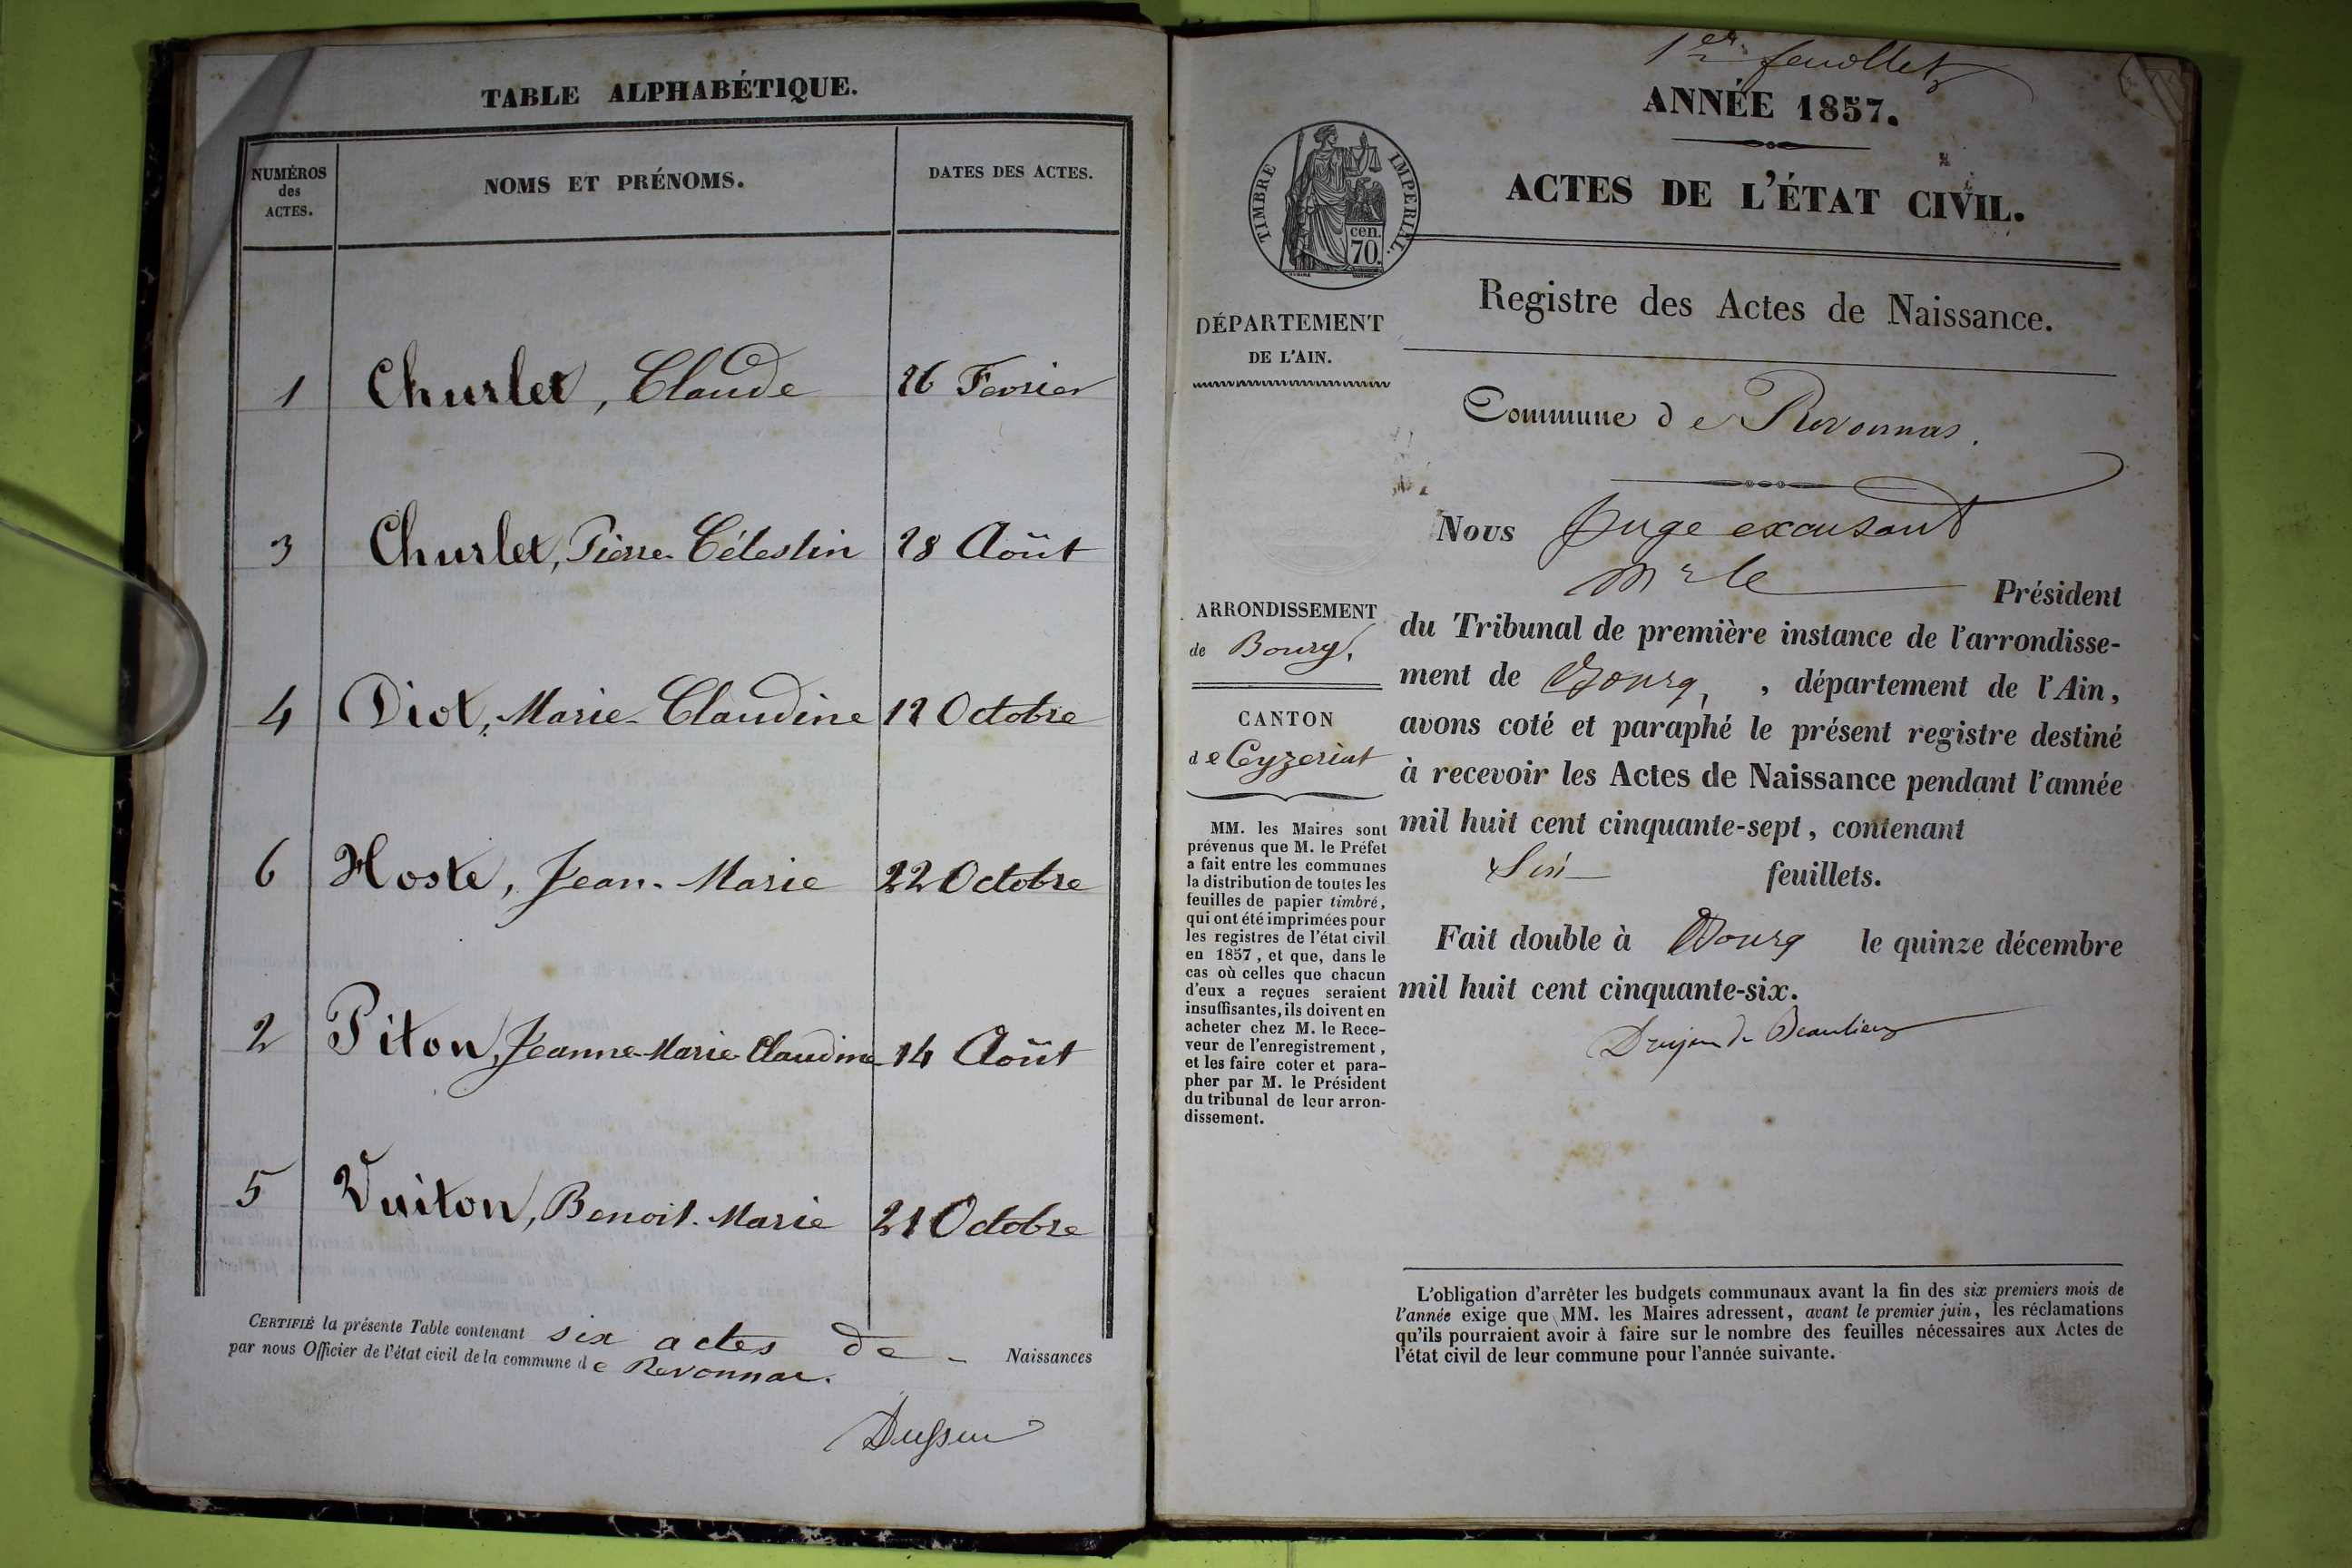 TABLE ALPHABÉTIQUE.
NUMÉROS
des
ACTES.
NOMS ET PRÉNOMS.
DATES DES ACTES.
1 Churlet, Claude 26 Fevrier
3 Churlet, Pierre-Célestin 28 Août
4 Diot, Marie-Claudine 12 Octobre
6 Hoste, Jean-Marie 22 Octobre
2 Piton, Jeanne-Marie-Claudine 14 Août
5 Vuiton, Benoit-Marie 21 Octobre
CERTIFIÉ la présente Table contenant six actes de - Naissances
par nous Officier de l'état civil de la commune de Revonnas.
1er feuillet
ANNÉE 1857.
ACTES DE L'ÉTAT CIVIL.
TIMBRE IMPERIAL.
cen.
70.
DÉPARTEMENT
DE L'AIN.
Registre des Actes de Naissance.
Commune de Revonnas.
ARRONDISSEMENT
de Bourg.
CANTON
de Ceyzeriat
MM. les Maires sont
prévenus que M. le Préfet
a fait entre les communes
la distribution de toutes les
feuilles de papier timbré,
qui ont été imprimées pour
les registres de l'état civil
en 1857, et que, dans le
cas où celles que chacun
d'eux a reçues seraient
insuffisantes, ils doivent en
acheter chez M. le Rece-
veur de l'enregistrement,
et les faire coter et para-
pher par M. le Président
du tribunal de leur arron-
dissement.
Nous Juge excusant
Mr le Président
du Tribunal de première instance de l'arrondisse-
ment de Bourg, , département de l'Ain,
avons coté et paraphé le présent registre destiné
à recevoir les Actes de Naissance pendant l'année
mil huit cent cinquante-sept, contenant
Six feuillets.
Fait double à Bourg le quinze décembre
mil huit cent cinquante-six.
Drujon de Beaulieu
L'obligation d'arrêter les budgets communaux avant la fin des six premiers mois de
l'année exige que MM. les Maires adressent, avant le premier juin, les réclamations
qu'ils pourraient avoir à faire sur le nombre des feuilles nécessaires aux Actes de
l'état civil de leur commune pour l'année suivante.